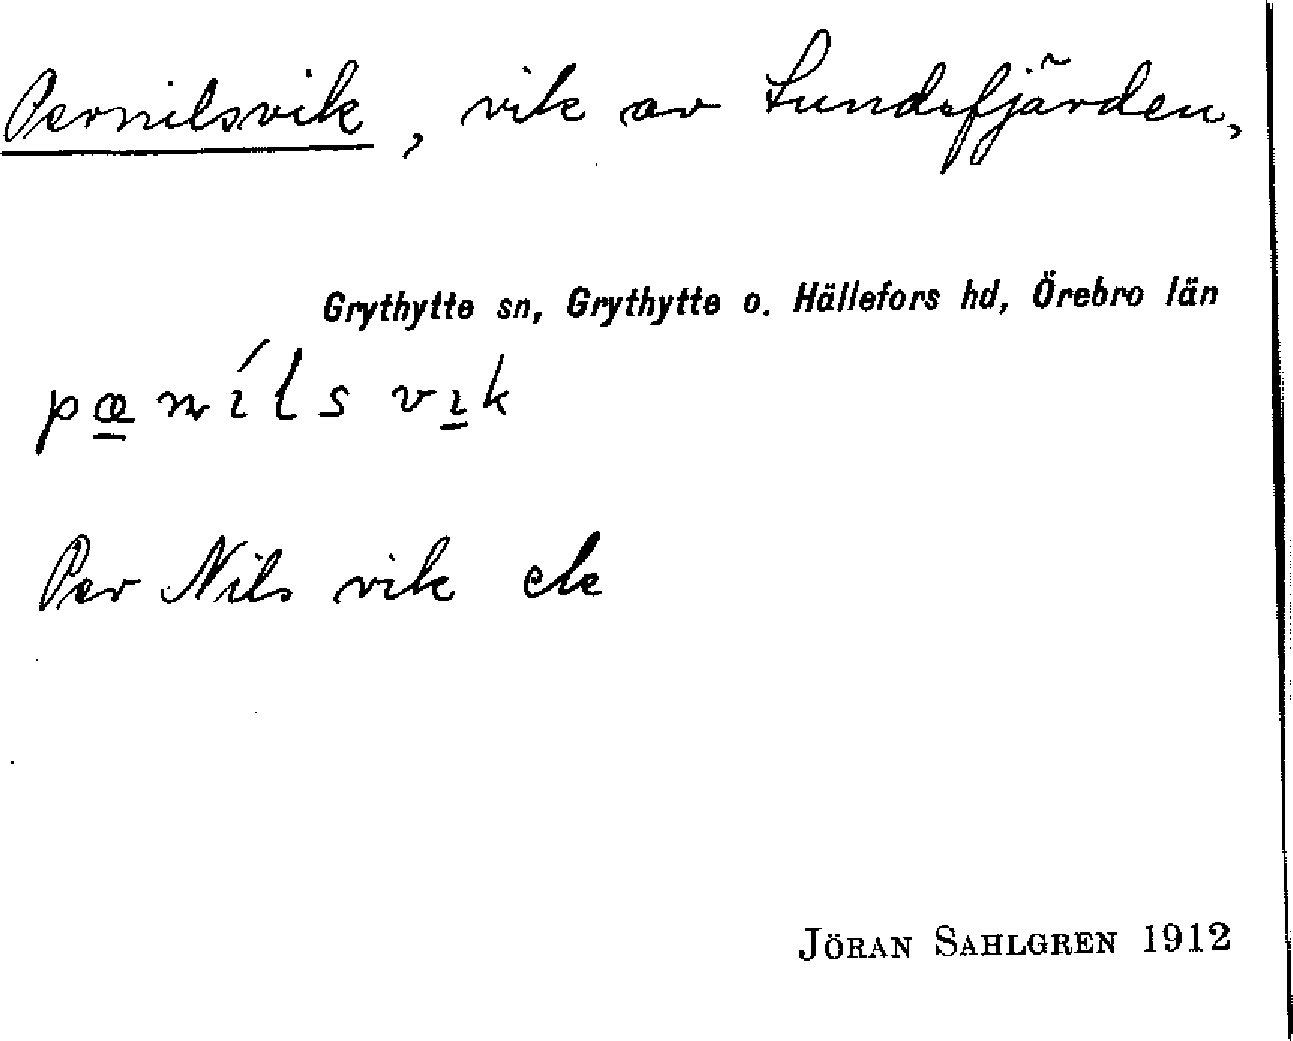 Pernilsvik, vik av Sundsfjärden,
Grythytte sn, Grythytte o. Hällefors hd, Örebro län
pæ̲nı́ls vı̲k
Per Nils vik ek
JÖRAN SAHLGREN 1912